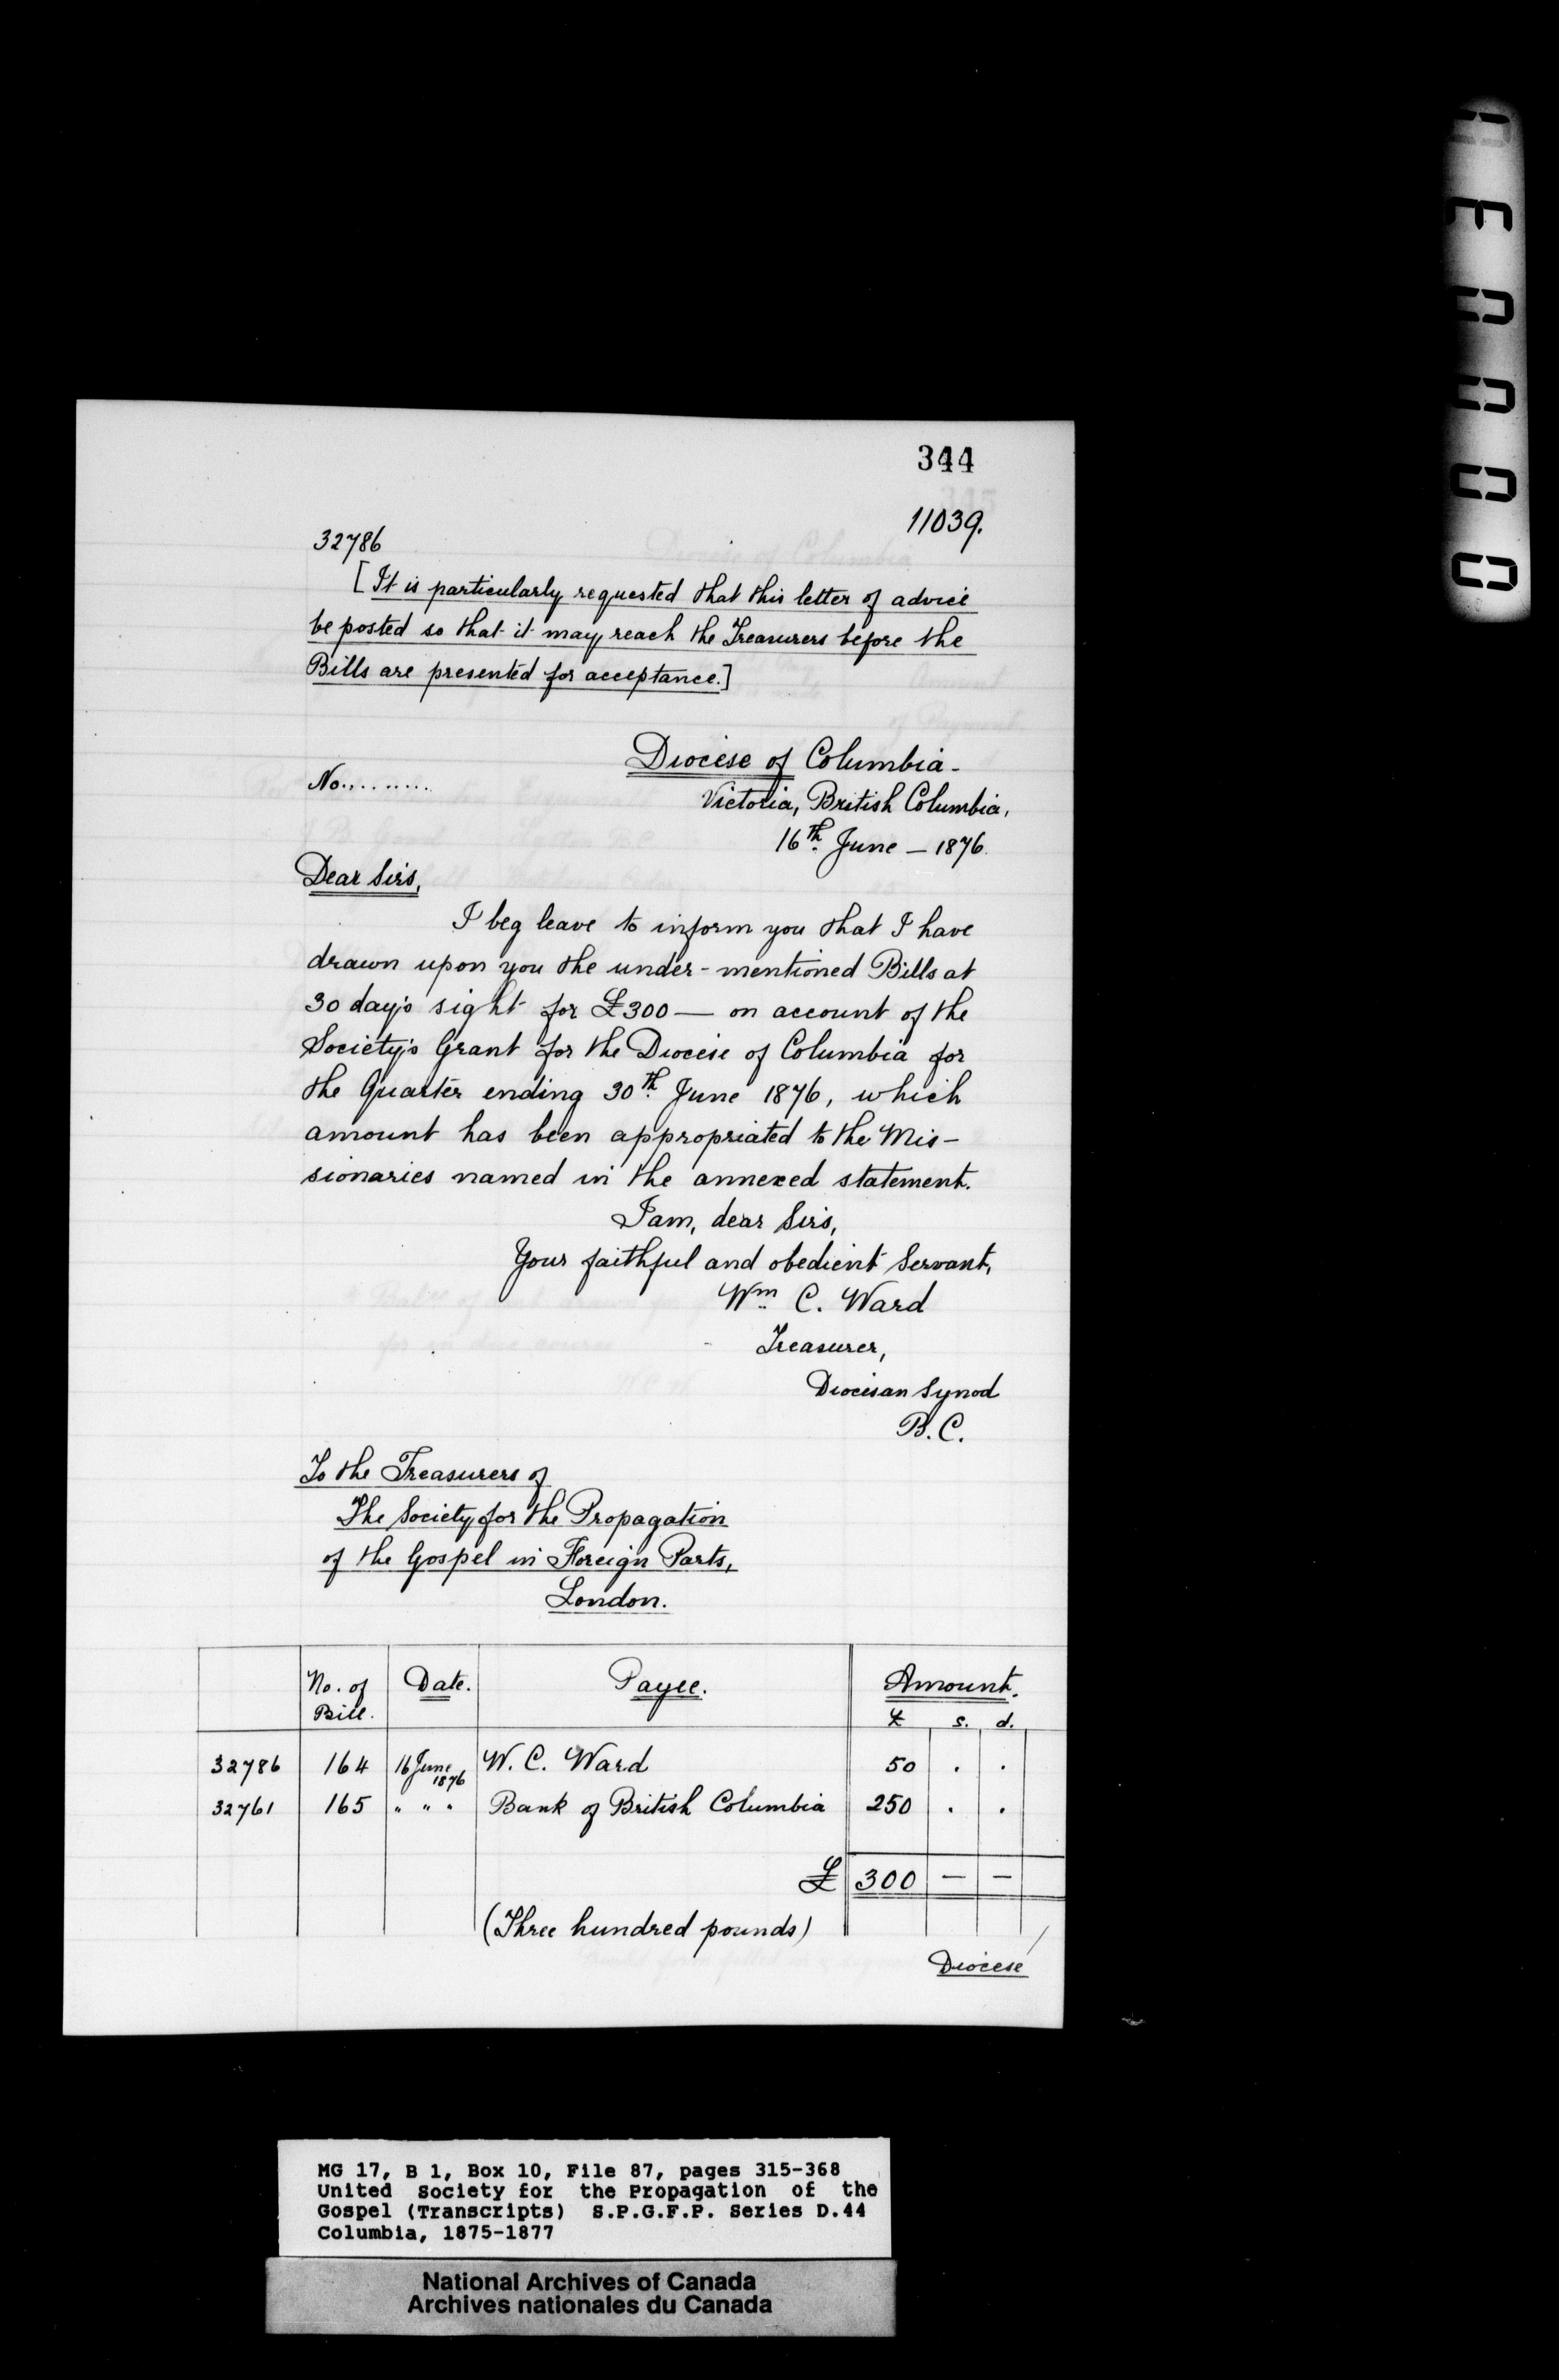 344
11039.
32786
[It is particularly requested that this letter of advice
be posted so that it may reach the Treasurers before the
Bills are presented for acceptance.]
Diocese of Columbia-
No.........
Victoria, British Columbia,
16th June - 1876.
Dear Sirs,
I beg leave to inform you that I have
drawn upon you the under-mentioned Bills at
30 day's sight for £300 — on account of the
Society's Grant for the Diocese of Columbia for
the Quarter ending 30th June 1876, which
amount has been appropriated to the Mis-
sionaries named in the annexed statement.
I am, dear Sirs,
Your faithful and obedient Servant,
Wm C. Ward
Treasurer,
Diocesan Synod
B.C.
To the Treasurers of
The Society for the Propagation
of the Gospel in Foreign Parts,
London.
No. of Bill. Date. Payee. Amount.
£ s. d.
32786 164 16 June 1876 W. C. Ward 50 . .
32761 165 " " " Bank of British Columbia 250 . .
£ 300 — —
(Three hundred pounds)
Diocese
MG 17, B 1, Box 10, File 87, pages 315-368
United Society for the Propagation of the
Gospel (Transcripts) S.P.G.F.P. Series D.44
Columbia, 1875-1877
National Archives of Canada
Archives nationales du Canada